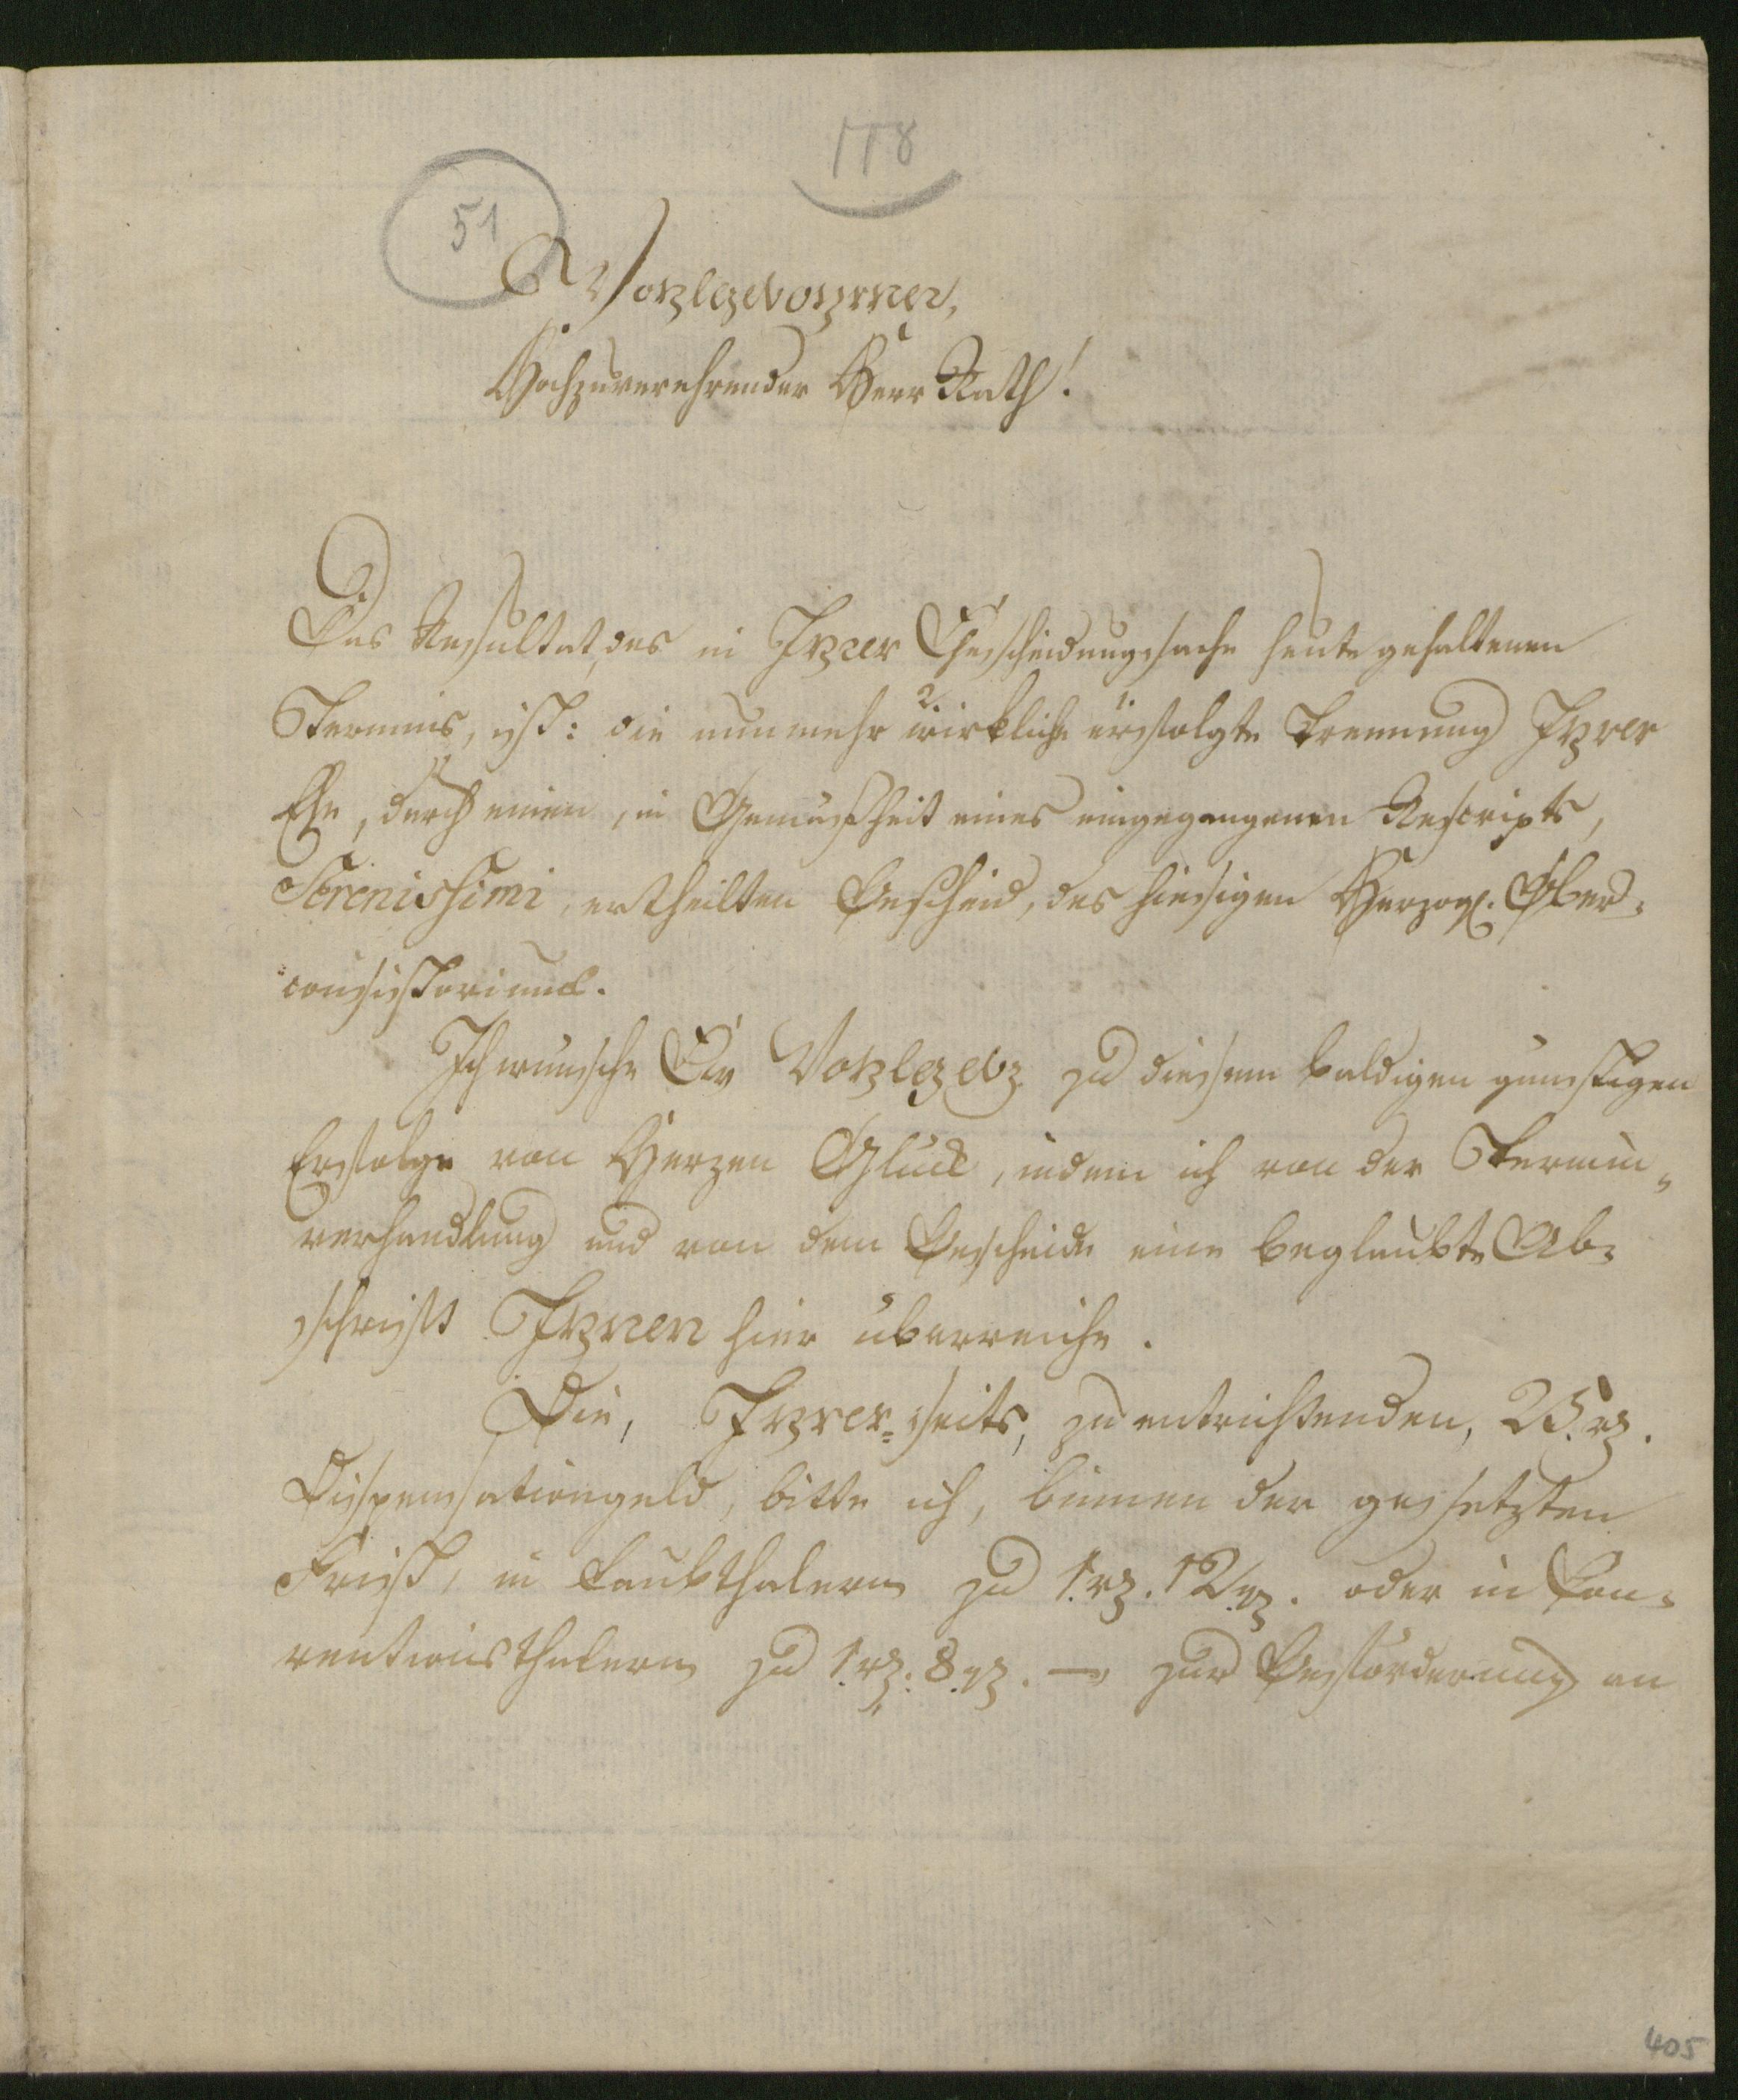 118
51
Wohlgebohrner,
Hochzuverehrender Herr Rath!
Das Resultat, des in Ihrer Ehescheidungssache heute gehaltenen
Termins, ist: die nunmehr wirkliche erfolgte Trennung Ihrer
Ehe, durch einen, in Gemäsheit eines eingegangenen Rescripts,
Serenissimi, ertheilten Bescheid, des hiesigen Herzogl. Ober-
consistoriums.
Ich wünsche Ew Wohlgeb. zu diesem baldigen günstigen
Erfolge von Herzen Glück, indem ich von der Termin-
verhandlung und von dem Bescheide eine beglaubte Ab-
schrift Ihnen hier überreiche.
Die, Ihrer-seits, zu entrichtenden, 25. rh.
Dispensationgeld, bitte ich, binnen der gesetzten
Frist, in Laubthalern zu 1. rh. 12. gh. oder in Con-
ventionsthalern zu 1. rh. 8. gh. — zur Beförderung an
405